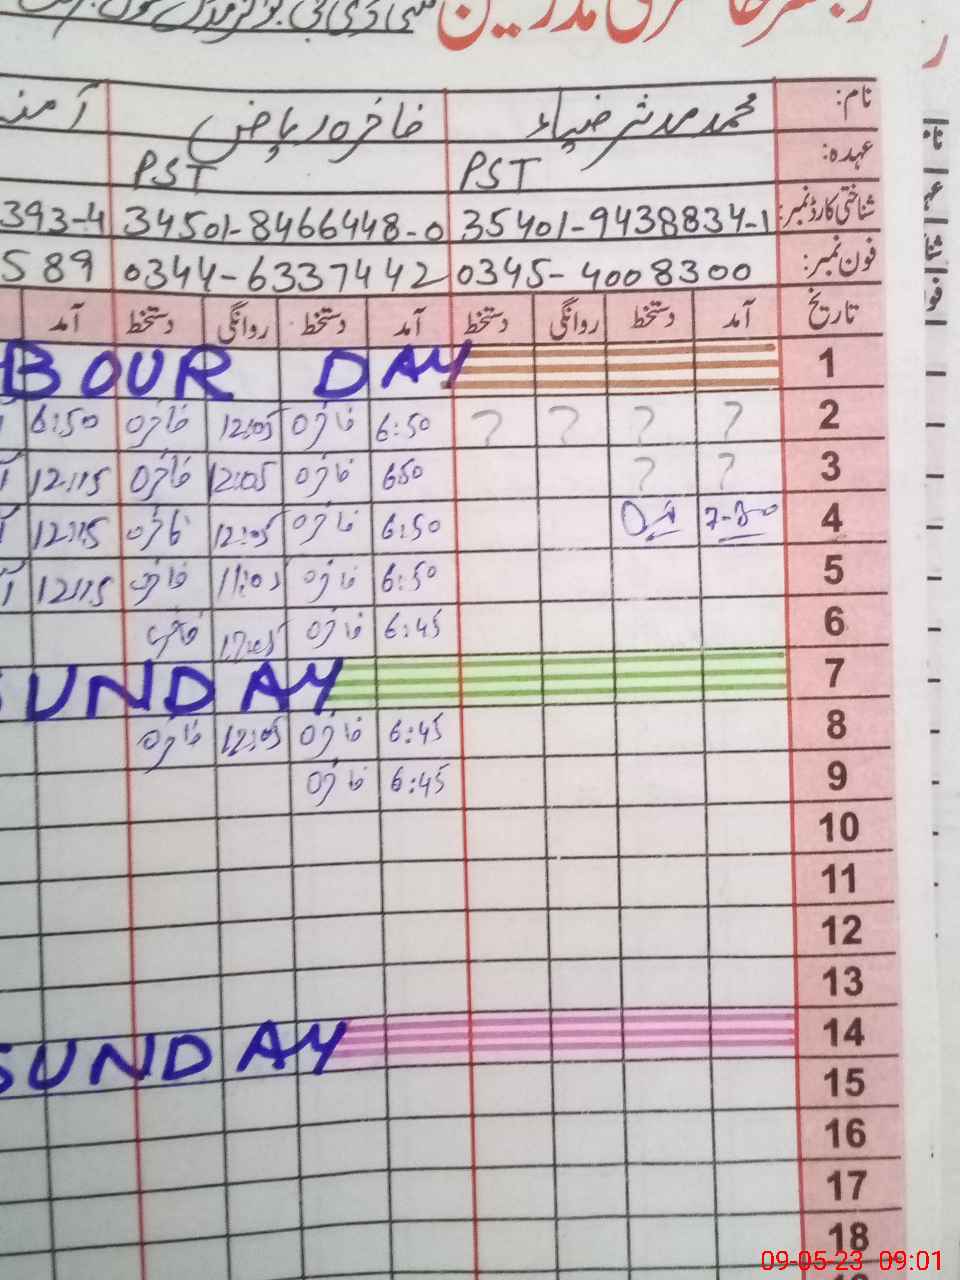 رجسٹر حاضری مدرسین
نام: محمد مدثر ضیاء فاخرہ ریاض آمنہ
عہدہ: PST PST
شناختی کارڈ نمبر: 35401-9438834-1 34501-8466448-0 393-4
فون نمبر: 0345-4008300 0344-6337442 589
تاریخ آمد دستخط روانگی دستخط آمد دستخط روانگی دستخط آمد
1 BOUR DAY
2 ? ? ? ? 6:50 فاخرہ 12:05 فاخرہ 6:50
3 ? ? 650 فاخرہ 12:05 فاخرہ 12:15
4 7-30 6:50 فاخرہ 12:05 فاخرہ 12:15
5 6:50 فاخرہ 11:05 فاخرہ 12:15
6 6:45 فاخرہ 12:05 فاخرہ
7 SUNDAY
8 6:45 فاخرہ 12:05 فاخرہ
9 6:45 فاخرہ
10
11
12
13
14 SUNDAY
15
16
17
18
09-05-23 09:01